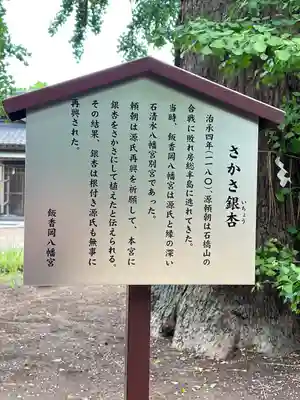 さかさ銀杏
いちょう
治承四年(一一八〇)、源頼朝は石橋山の
合戦に敗れ房総半島に逃れてきた。
当時、飯香岡八幡宮は源氏と縁の深い
石清水八幡宮別宮であった。
頼朝は源氏再興を祈願して、本宮に
銀杏をさかさにして植えたと伝えられる。
その結果、銀杏は根付き源氏も無事に
再興された。
飯香岡八幡宮